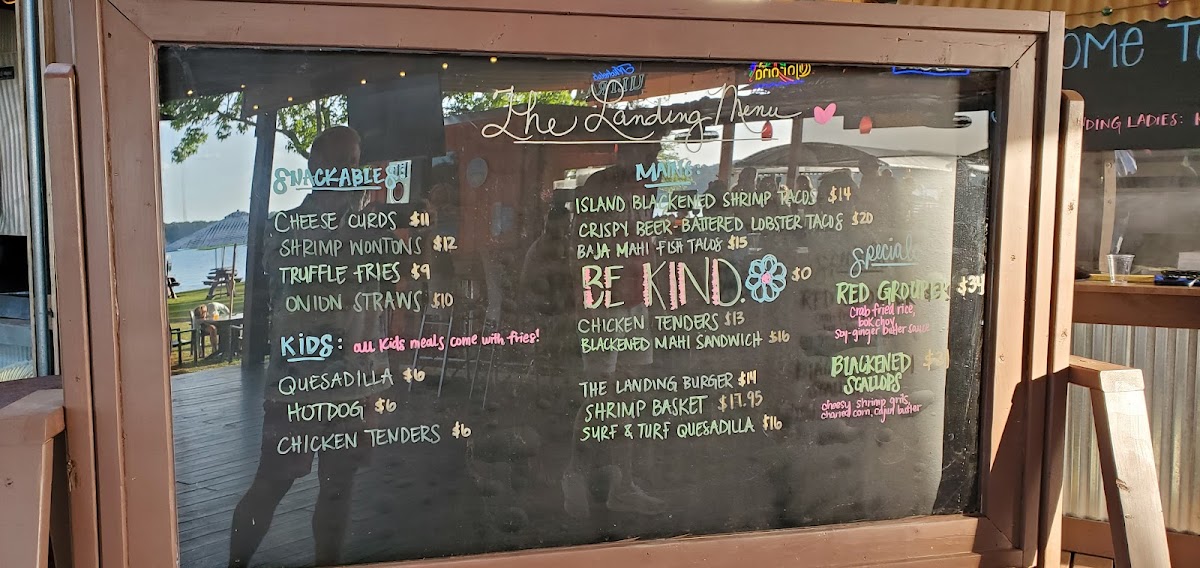 The Landing Menu
SNACKABLES:
CHEESE CURDS $11
SHRIMP WONTONS $12
TRUFFLE FRIES $9
ONION STRAWS $10
KIDS: all kids meals come with fries!
QUESADILLA $6
HOTDOG $6
CHICKEN TENDERS $6
MAINS:
ISLAND BLACKENED SHRIMP TACOS $14
CRISPY BEER-BATTERED LOBSTER TACOS $20
BAJA MAHI FISH TACOS $15
BE KIND. $0
CHICKEN TENDERS $13
BLACKENED MAHI SANDWICH $16
THE LANDING BURGER $14
SHRIMP BASKET $17.95
SURF & TURF QUESADILLA $16
Specials
RED GROUPER $34
crab fried rice,
bok choy,
soy-ginger butter sauce
BLACKENED
SCALLOPS
cheesy shrimp grits,
charred corn, cajun butter
Corona
OME T
DING LADIES: